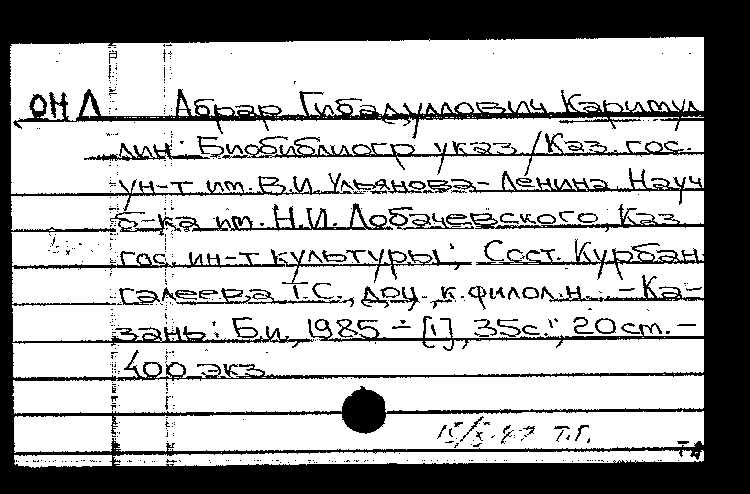 ОНЛ Абрар Гибадуллович Каримул
лин: Биобиблиогр указ./Каз. гос.
ун-т им. В.И. Ульянова-Ленина. Науч
б-ка им. Н.И. Лобачевского, Каз.
гос. ин-т культуры; Сост. Курбан-
галеева Т.С., доц., к.филол.н. - Ка-
зань: Б.и., 1985 - [1], 35с.; 20 см. -
400 экз.
Т.Г.